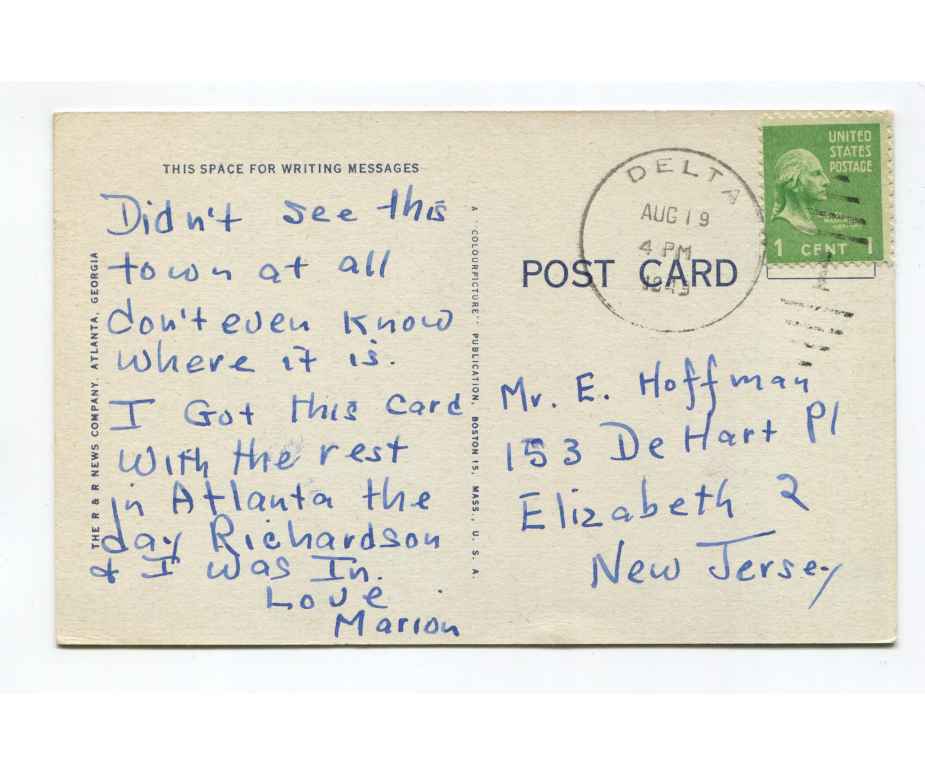 THIS SPACE FOR WRITING MESSAGES
Didn't see this
town at all
don't even know
where it is.
I Got this card
with the rest
in Atlanta the
day Richardson
& I was In.
Love
Marion
THE R & R NEWS COMPANY, ATLANTA, GEORGIA
A "COLOURPICTURE" PUBLICATION, BOSTON 15, MASS., U.S.A.
DELTA
AUG 19
4 PM
1949
UNITED
STATES
POSTAGE
1 CENT 1
POST CARD
Mr. E. Hoffman
153 DeHart Pl
Elizabeth 2
New Jersey